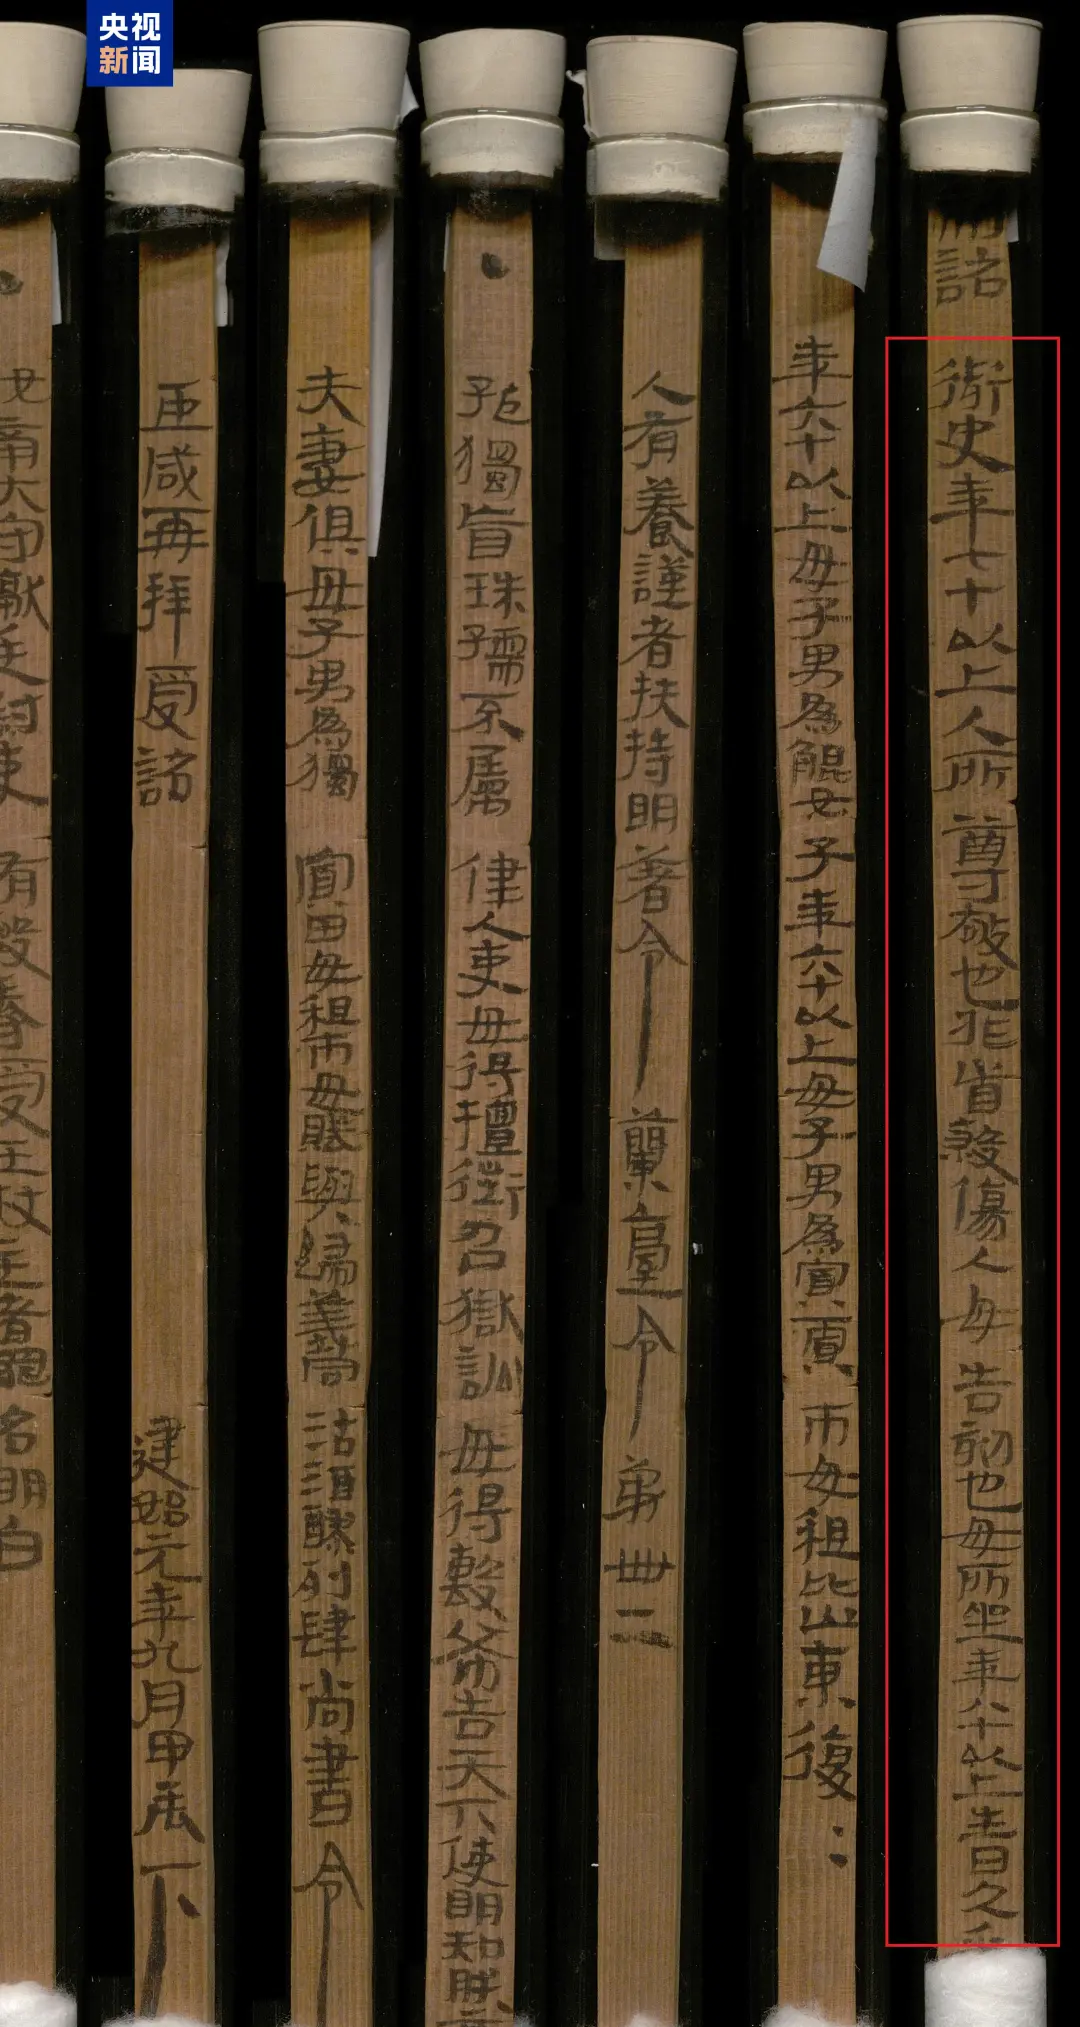 央视
新闻
詔御史年七十以上人所尊敬也非首殺傷人毋告劾也毋所坐年八十以上生日久乎
年六十以上毋子男為鯤女子年六十以上毋子男為寡賈市毋租比山東復
人有養謹者扶持明著令蘭臺令第卌二
孤獨盲珠孺不屬律人吏毋得擅徵召獄訟毋得毄布告天下使明知朕
夫妻俱毋子男為獨寡田毋租市毋賦與歸義同沽酒醪列肆尚書令
臣咸再拜受詔 建始元年九月甲辰下
南大守讞廷尉吏有毆辱受王杖主者罪名明白